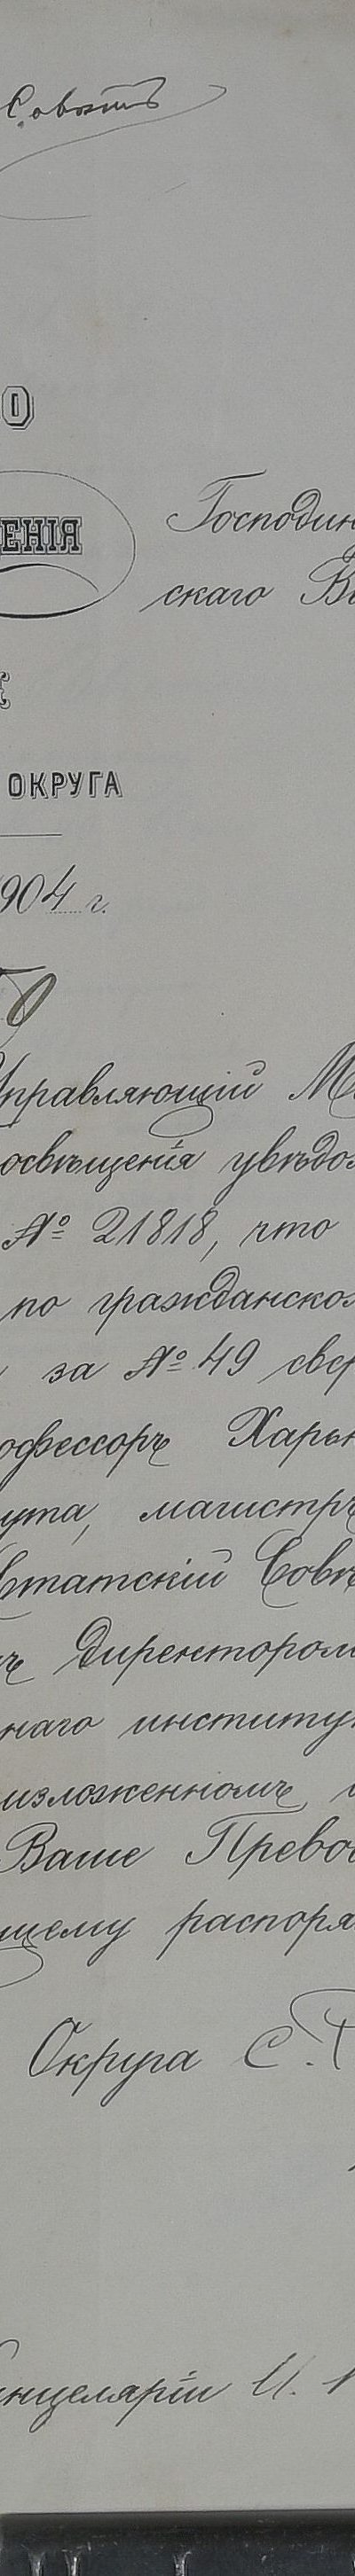 Совѣтъ
О
ЕНІЯ
Господин
скаго
ОКРУГА
904 г.
Управляющій М
освѣщенія увѣдо
№ 21818, что
по гражданском
за № 49 свер
офессоръ Харьк
ута, магистръ
Статскій Совѣ
ъ Директоромъ
наго институ
изложенномъ
Ваше Превос
щему распоря
Округа С.
нцеляріи И.